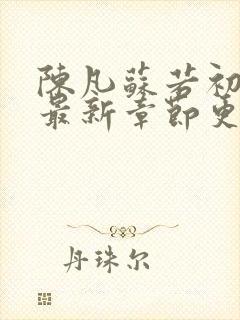 陳凡蘇若初
最新章節更
丹珠尔